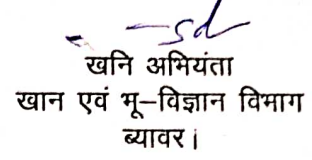 -sd
खनि अभियंता
खान एवं भू-विज्ञान विभाग
ब्यावर।